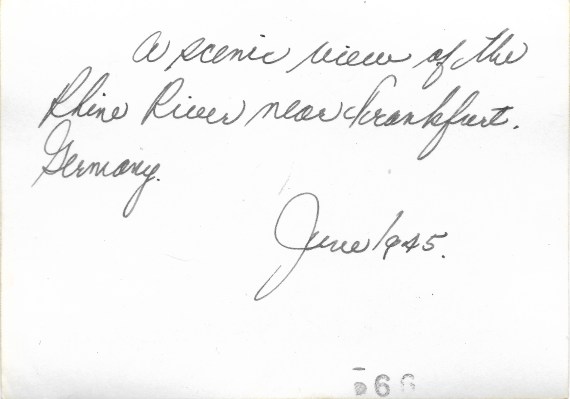 A scenic view of the
Rhine River near Frankfurt.
Germany.
June 1945.